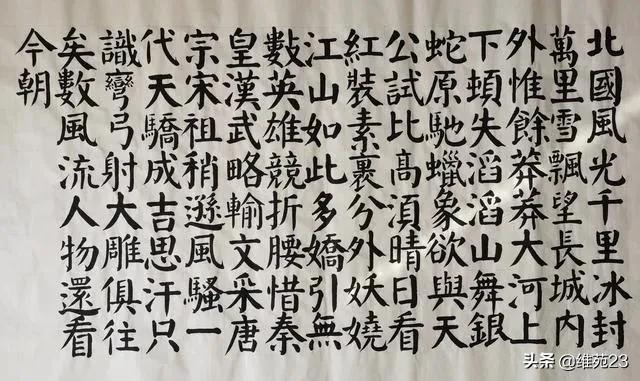 北國風光千里冰封
萬里雪飄望長城內
外惟餘莽莽大河上
下頓失滔滔山舞銀
蛇原馳蠟象欲與天
公試比髙湏晴日看
紅裝素裹分外妖嬈
江山如此多嬌引無
數英雄競折腰惜秦
皇漢武略輸文采唐
宗宋祖稍遜風騷一
代天驕成吉思汗只
識彎弓射大雕俱往
矣數風流人物還看
今朝
头条 @维苑23